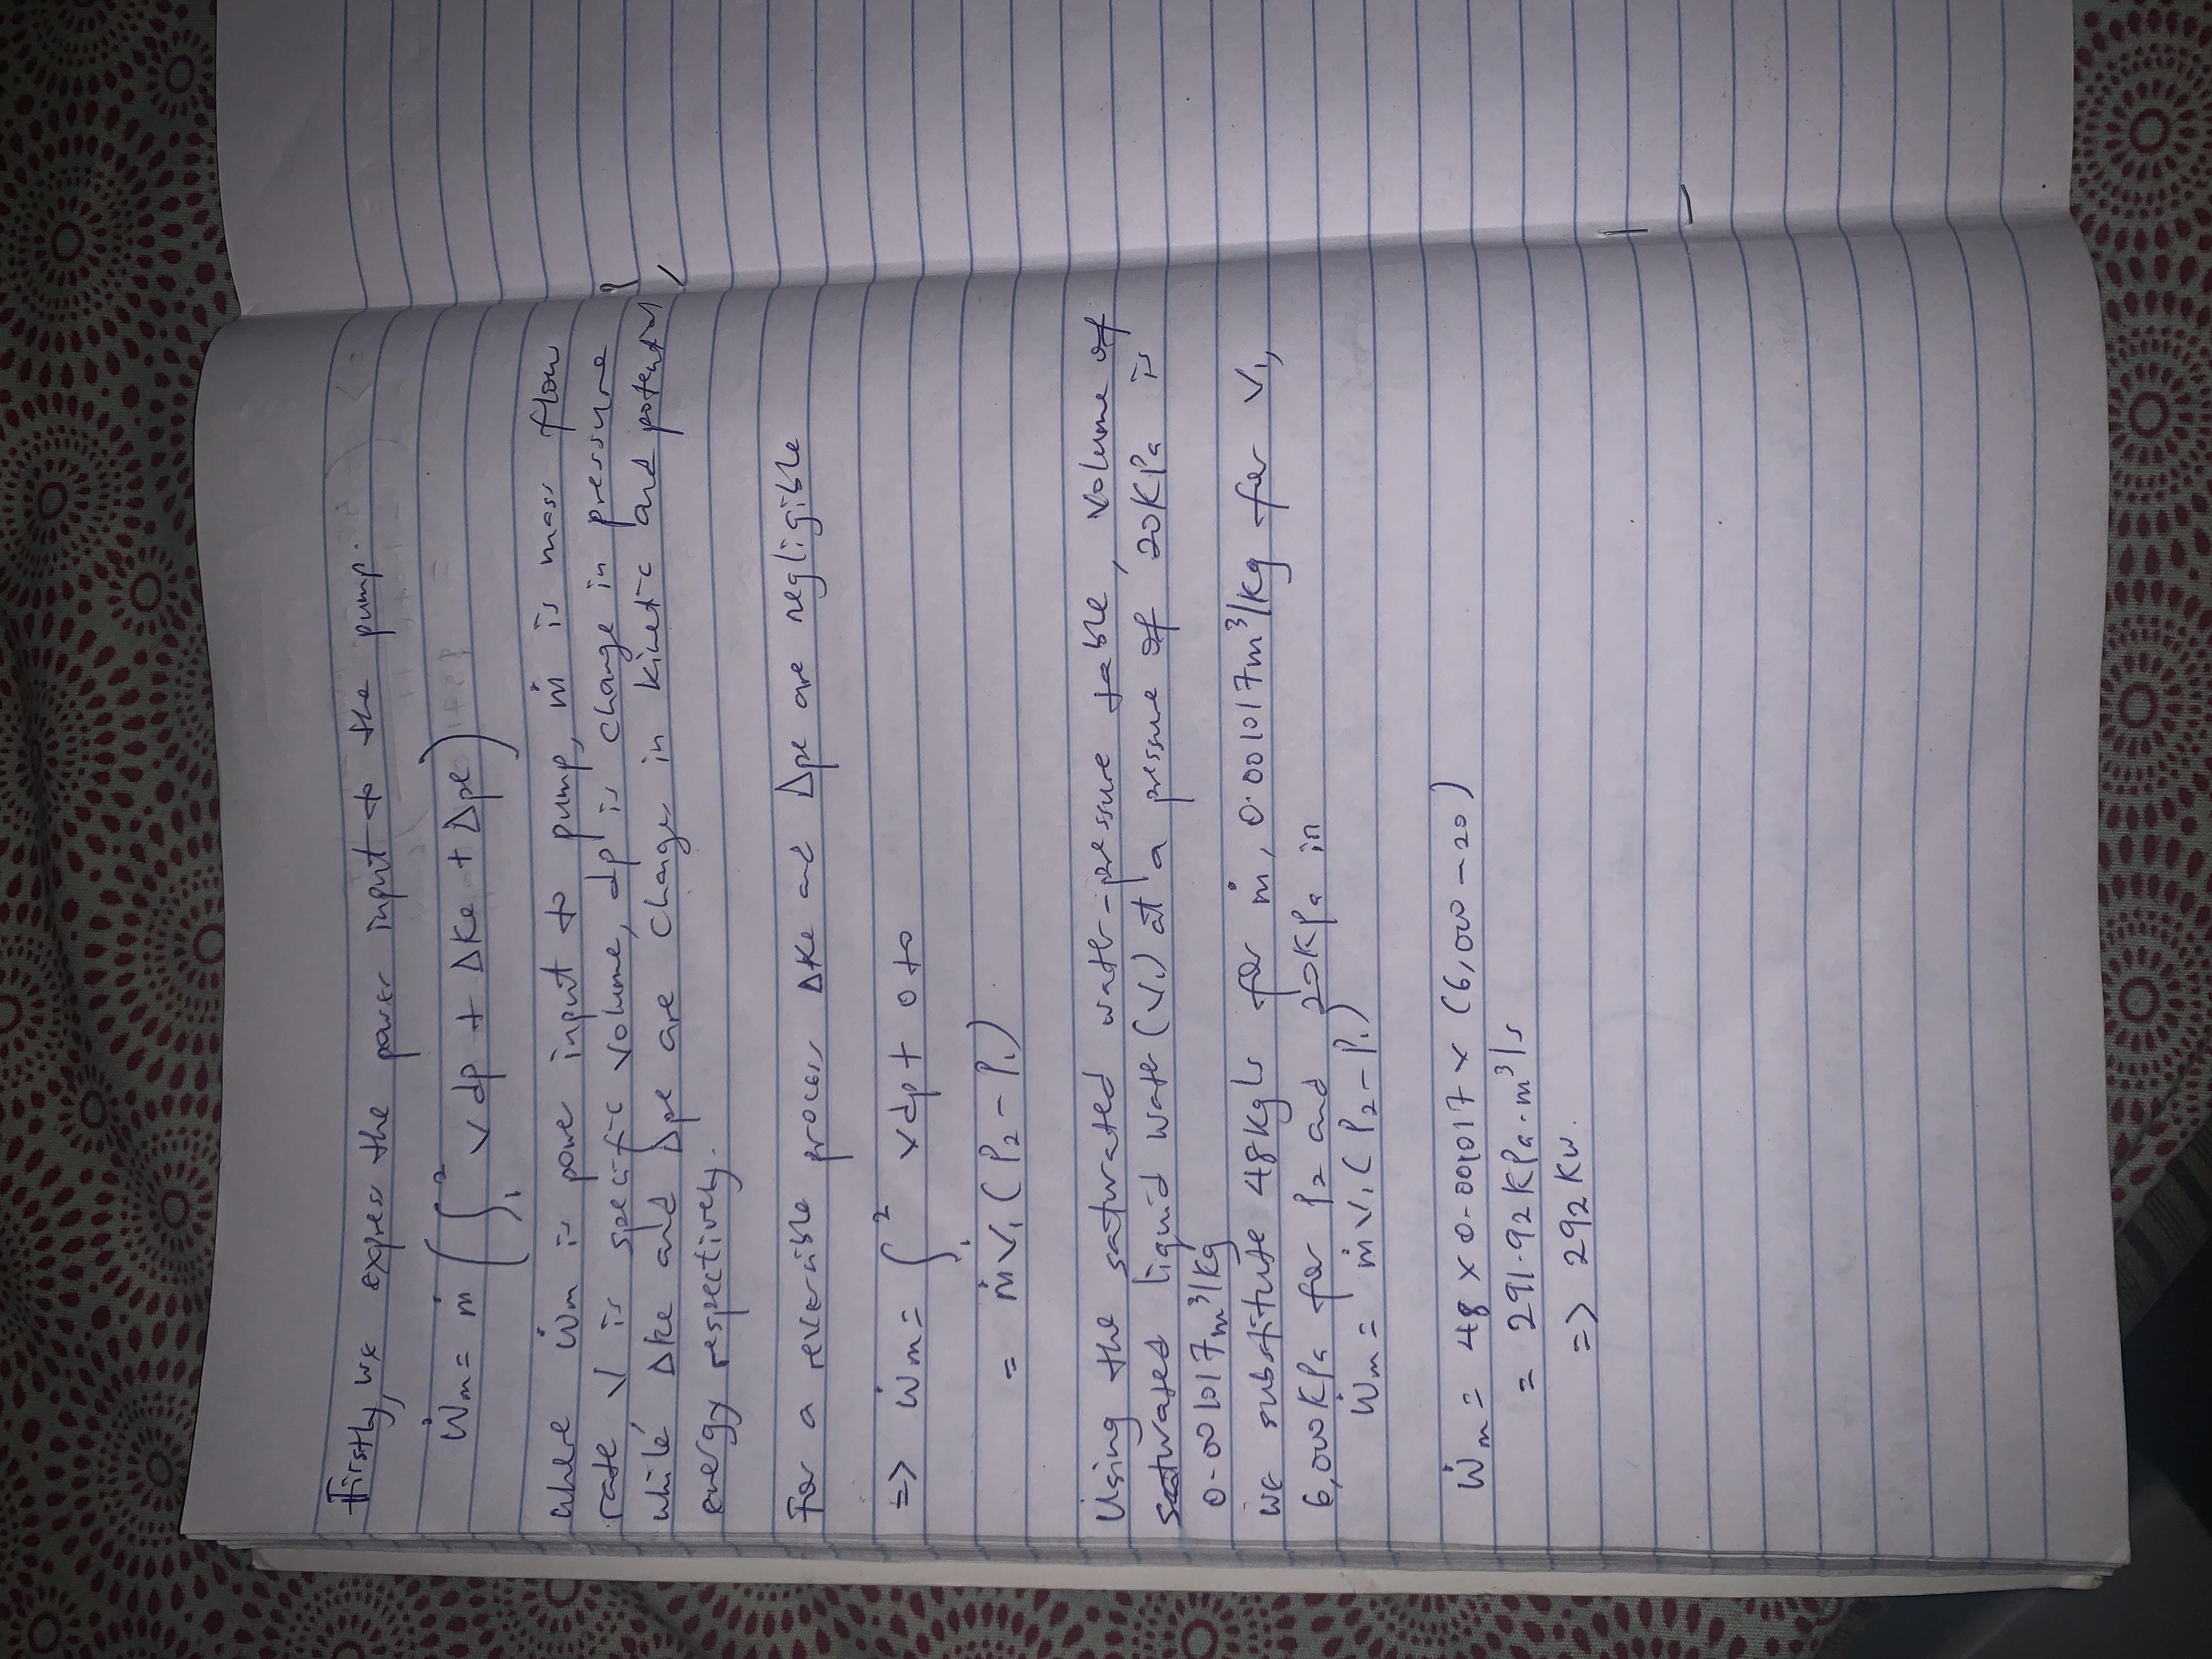 Firstly, we express the power input to the pump.
Ẇin = ṁ (∫₁² vdp + Δke + Δpe)
where Ẇin is power input to pump, ṁ is mass flow
rate v is specific volume, dp is change in pressure
while Δke and Δpe are change in kinetic and potential
energy respectively.
For a reversible process Δke and Δpe are negligible
=> Ẇin = ∫₁² vdp + 0 + 0
= ṁv₁(P₂ - P₁)
Using the saturated water-pressure table, volume of
saturated liquid water (v₁) at a pressure of 20KPa is
0.001017m³/kg
we substitute 48kg/s for ṁ, 0.001017m³/kg for v₁,
6,000KPa for P₂ and 20KPa in
Ẇin = ṁv₁(P₂ - P₁)
Ẇin = 48 x 0.001017 x (6,000 - 20)
= 291.92KPa.m³/s
=> 292Kw.